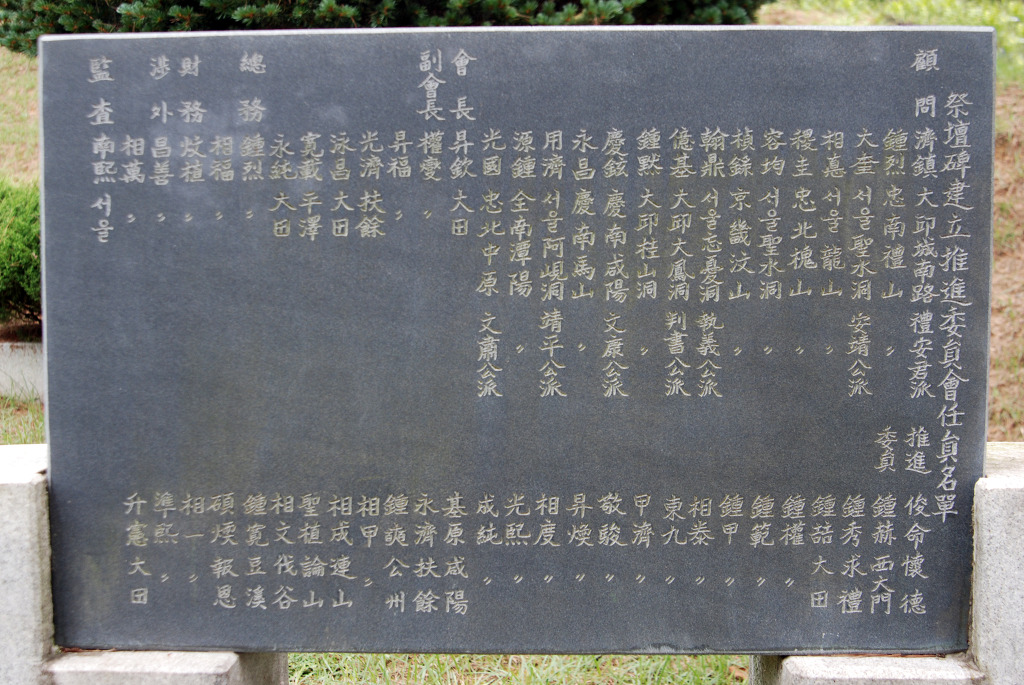 祭壇碑建立推進委員會任員名單
顧問 濟鎮 大邱城南路 禮安君派
鍾烈 忠南禮山 〃
大奎 서울聖水洞 安靖公派
相憙 서울龍山 〃
稷圭 忠北槐山 〃
容均 서울聖水洞 〃
楨銾 京畿汶山 〃
翰鼎 서울忘憂洞 執義公派
億基 大邱大鳳洞 判書公派
鍾默 大邱桂山洞 〃
慶鉉 慶南咸陽 文康公派
永昌 慶南馬山 〃
用濟 서울阿峴洞 靖平公派
源鍾 全南潭陽 〃
光國 忠北中原 文肅公派
會長 昇欽 大田
副會長 權燮 〃
昇福 〃
光濟 扶餘
泳昌 大田
寬載 平澤
永純 大田
總務 鍾烈 〃
相福 〃
財務 炆植 〃
涉外 昌善 〃
相萬 〃
監査 南熙 서울
推進委員 俊命 懷德
鍾赫 西大門
鍾秀 求禮
鍾喆 大田
鍾權 〃
鍾範 〃
鍾甲 〃
相泰 〃
東九 〃
甲濟 〃
敬駿 〃
昇煥 〃
相度 〃
光熙 〃
成純 〃
基原 咸陽
永濟 扶餘
鍾奭 公州
相甲 〃
相成 連山
聖植 論山
相文 伐谷
鍾寬 豆溪
碩煥 報恩
相一 〃
準熙 〃
升憲 大田